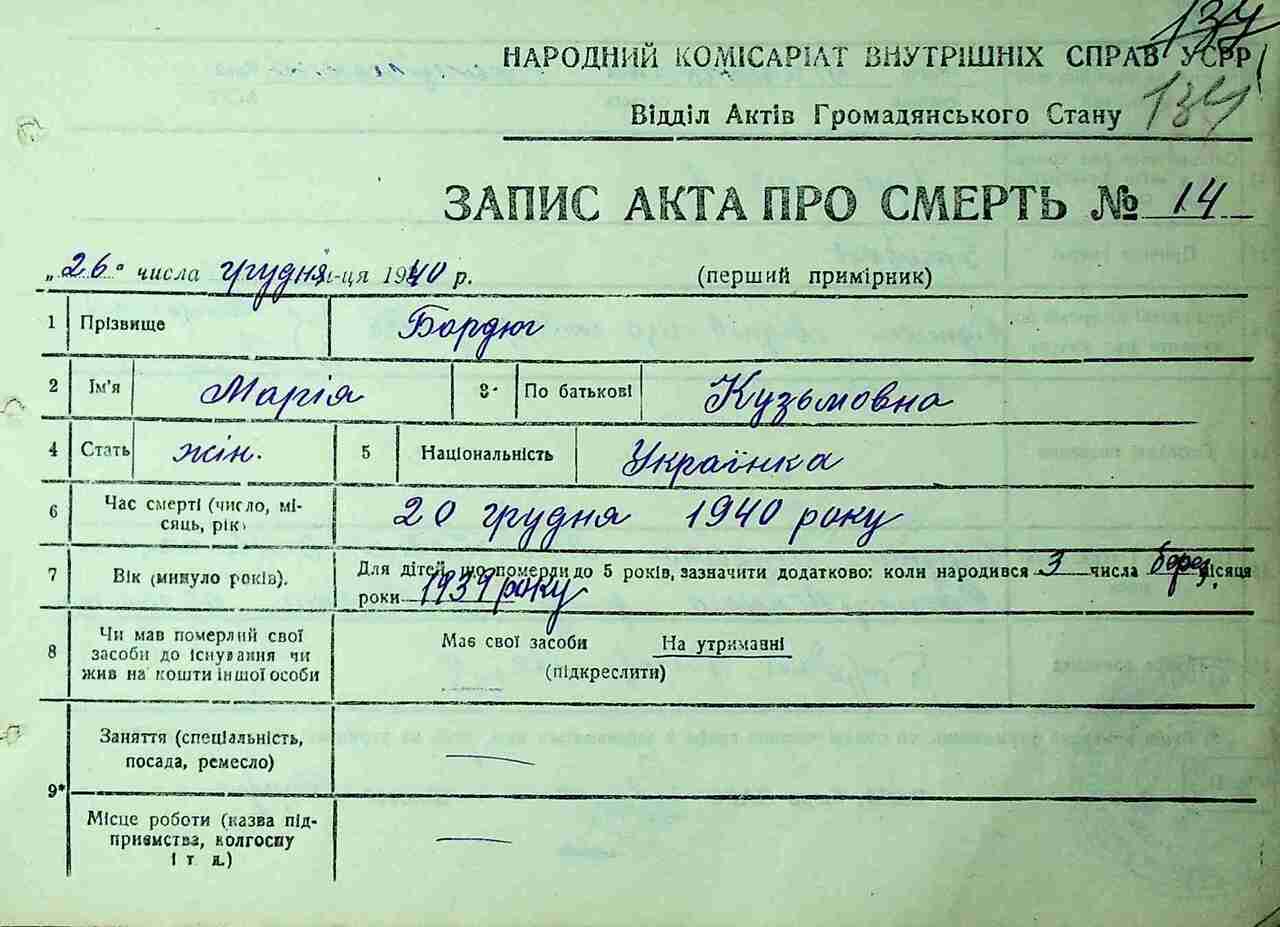 134
НАРОДНИЙ КОМІСАРІАТ ВНУТРІШНІХ СПРАВ УСРР
Відділ Актів Громадянського Стану 134
ЗАПИС АКТА ПРО СМЕРТЬ № 14
„26" числа грудня м-ця 1940 р. (перший примірник)
1 Прізвище Бордюг
2 Ім'я Марія 3 По батькові Кузьмовна
4 Стать жін. 5 Національність Українка
6 Час смерті (число, мі-
сяць, рік) 20 грудня 1940 року
7 Вік (минуло років). Для дітей, що померли до 5 років, зазначити додатково: коли народився 3 числа берез. місяця
роки 1939 року
8 Чи мав померлий свої
засоби до існування чи
жив на кошти іншої особи
Має свої засоби На утриманні
(підкреслити)
9* Заняття (спеціальність,
посада, ремесло) —
Місце роботи (назва під-
приємства, колгоспу
і т. д.) —